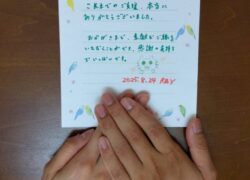 これまでのご支援、本当に
ありがとうございました。
おかげさまで、素敵なご縁を
いただくことができて、感謝の気持ち
でいっぱいです。
2025.8.24